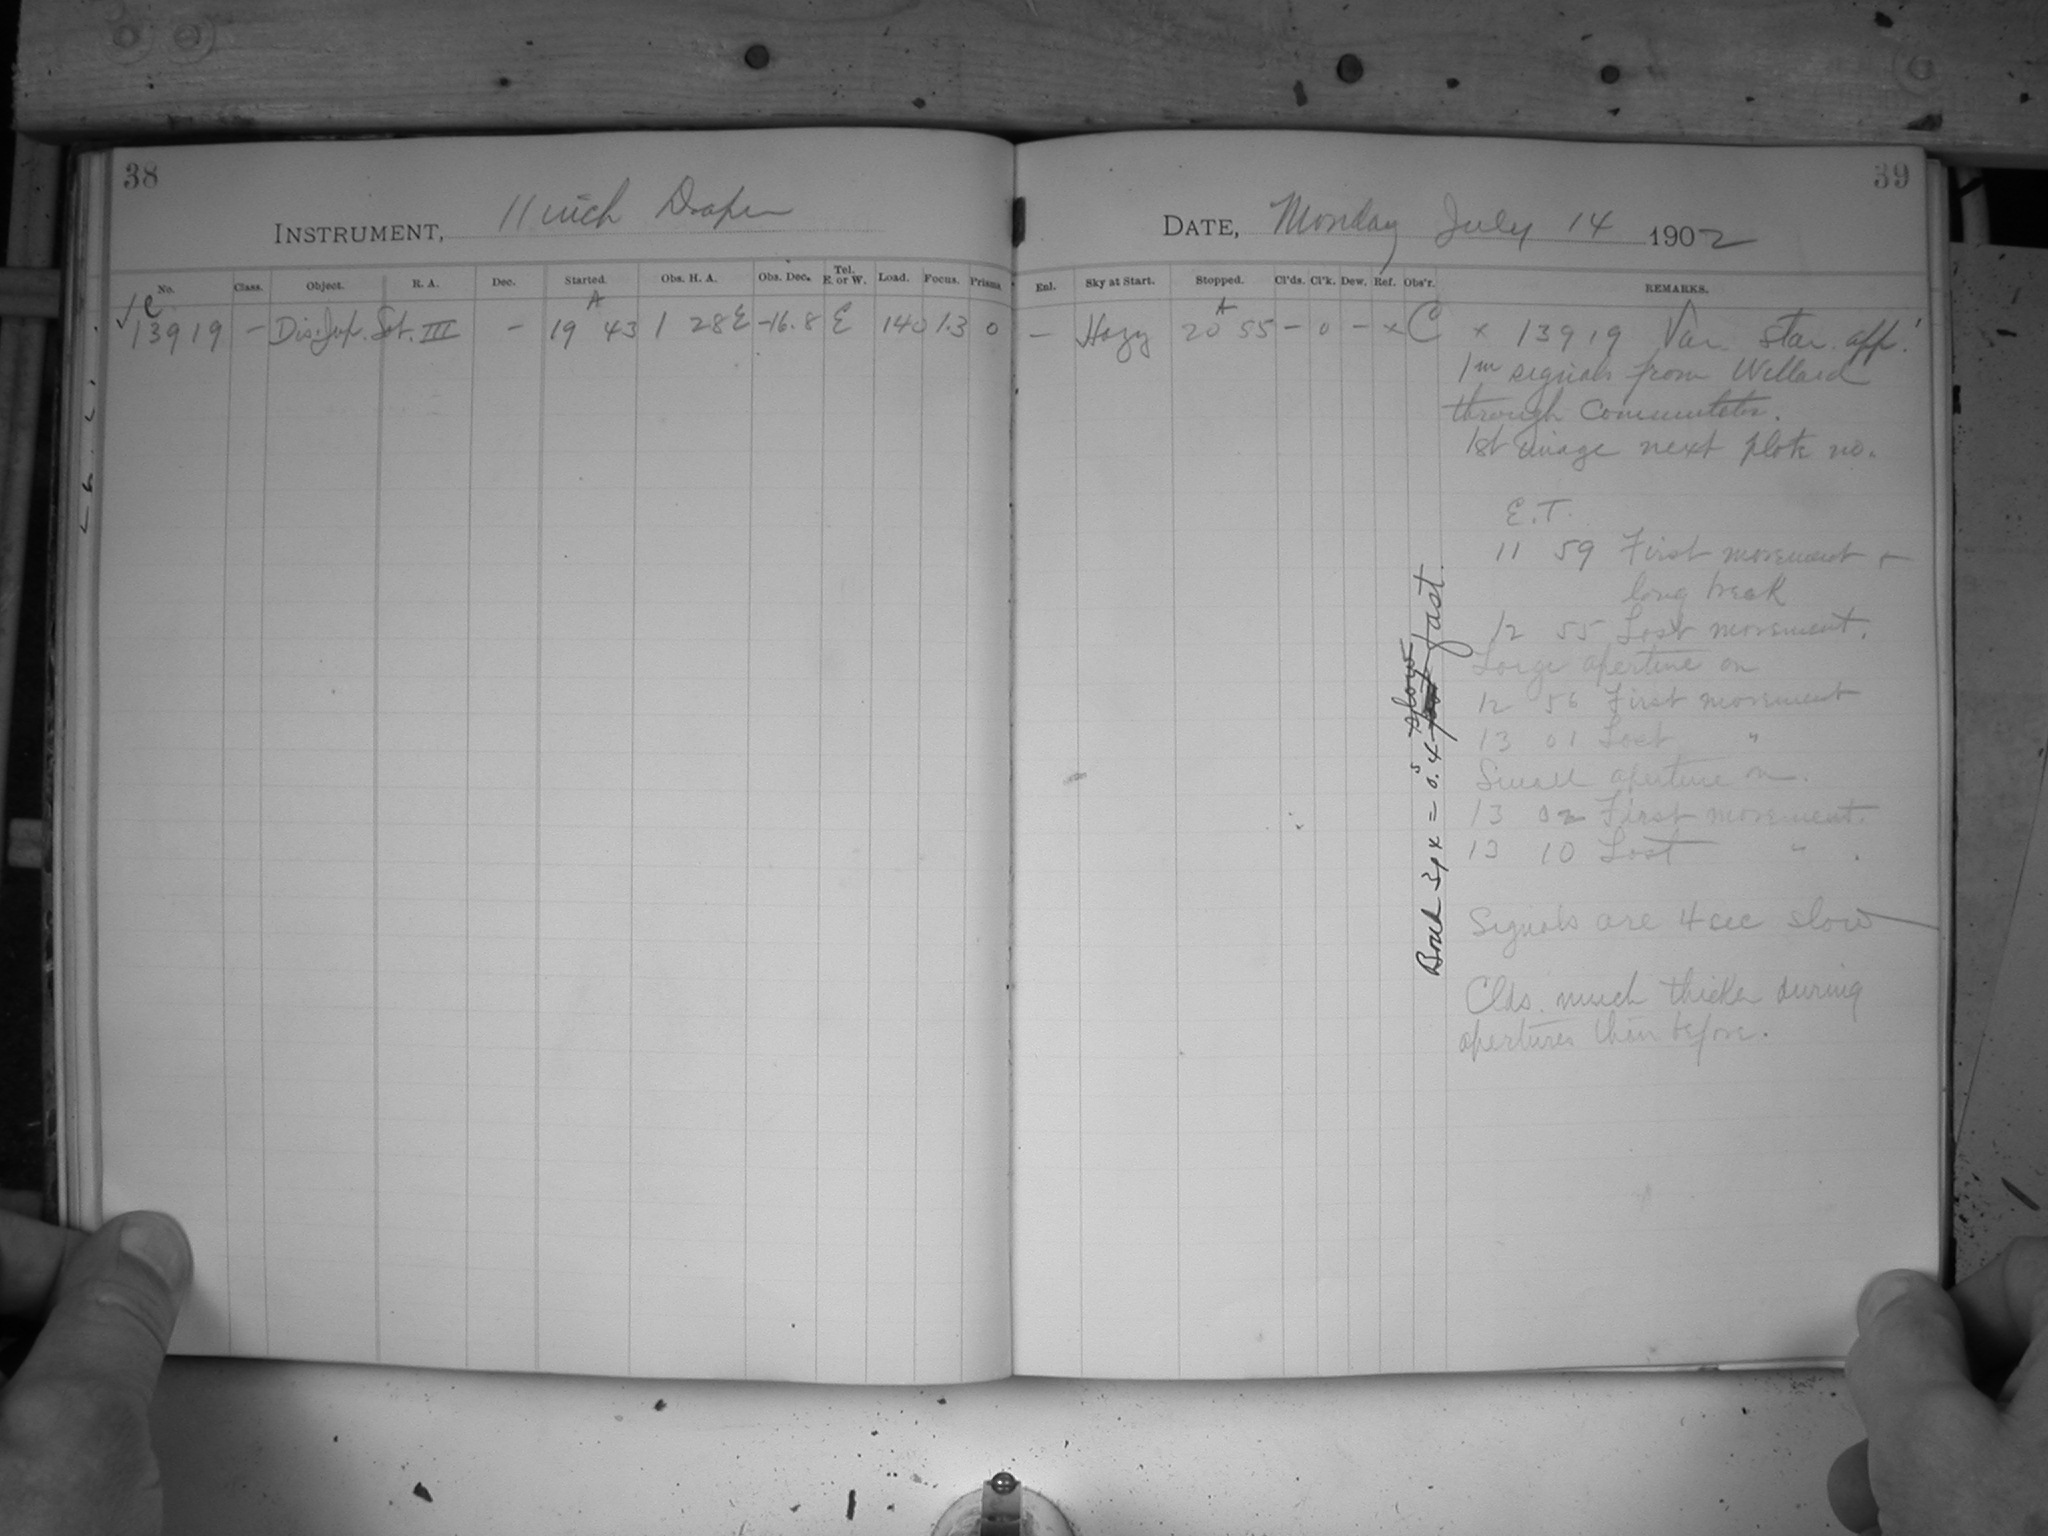 38
INSTRUMENT, 11 inch Draper
No. Class. Object. R. A. Dec. Started. Obs. H. A. Obs. Dec. Tel. E. or W. Load. Focus. Prisms
√ C A
13919 – Dis. Jup. Sat. III – 19 43 1 28E -16.8 E 140 1.3 0
39
DATE, Monday July 14 1902
Enl. Sky at Start. Stopped. Cl'ds. Cl'k. Dew. Ref. Obs'r. REMARKS.
A
– Hazy 20 55 – 0 – x C x 13919 Var. star app.
1m signals from Willard
through Commutator.
1st image next plate no.
E.T.
11 59 First movement +
long break
12 55 Last movement.
Large aperture on
12 56 First movement
13 01 Last "
Small aperture on.
13 02 First movement.
13 10 Last " .
Signals are 4 sec slow
Clds. much thicker during
apertures than before.
Bond = 0.4s slow fast.